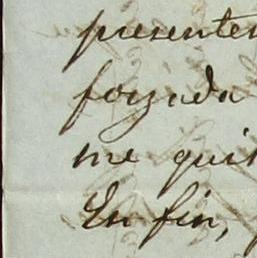 presenten
forzada
me quit
En fin,